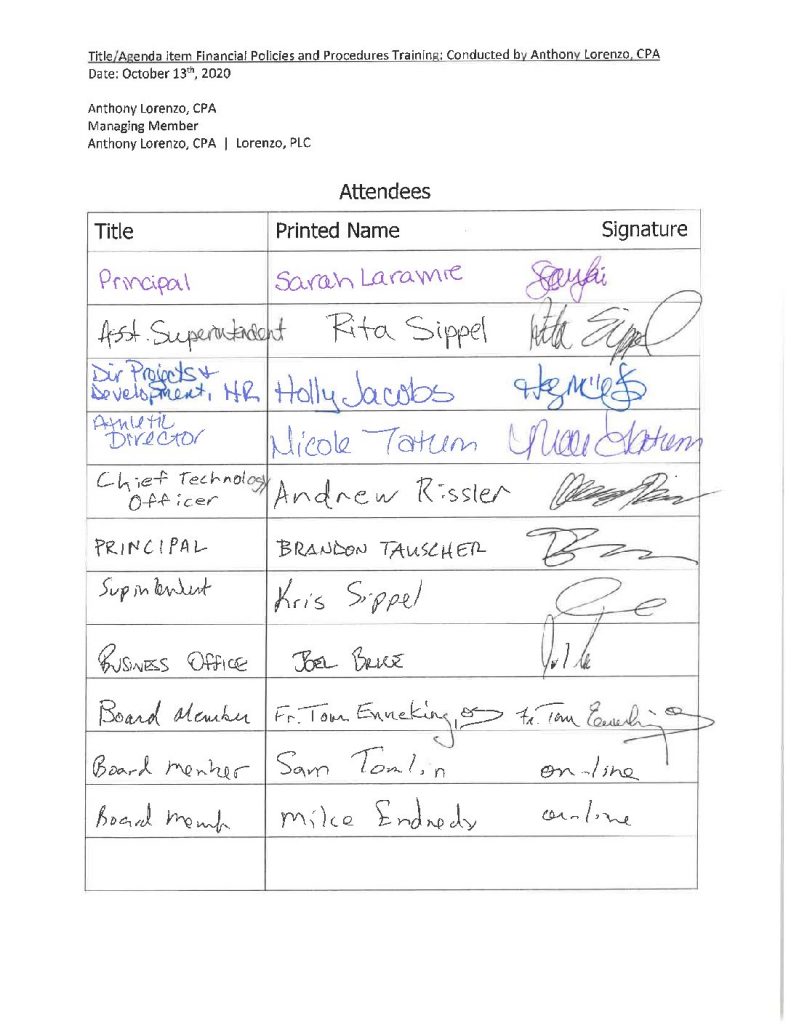 Title/Agenda item Financial Policies and Procedures Training: Conducted by Anthony Lorenzo, CPA
Date: October 13th, 2020
Anthony Lorenzo, CPA
Managing Member
Anthony Lorenzo, CPA | Lorenzo, PLC
Attendees
Title Printed Name Signature
Principal Sarah Laramie
Asst. Superintendent Rita Sippel Rita Sippel
Dir Projects +
Development, HR Holly Jacobs
Athletic
Director Nicole Tatum Nicole Tatum
Chief Technology
Officer Andrew Rissler
PRINCIPAL BRANDON TAUSCHER
Suprintendent Kris Sippel
BUSINESS OFFICE JOEL BRUCE
Board Member Fr. Tom Enneking, Fr. Tom Enneking
Board member Sam Tomlin on-line
Board Memb Mike Endredy on-line